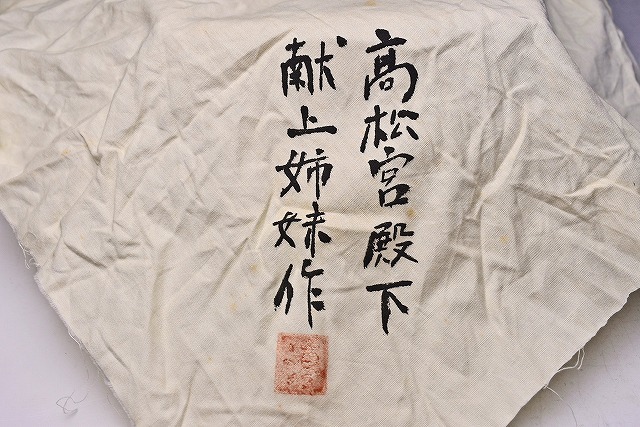 髙松宮殿下
献上姉妹作